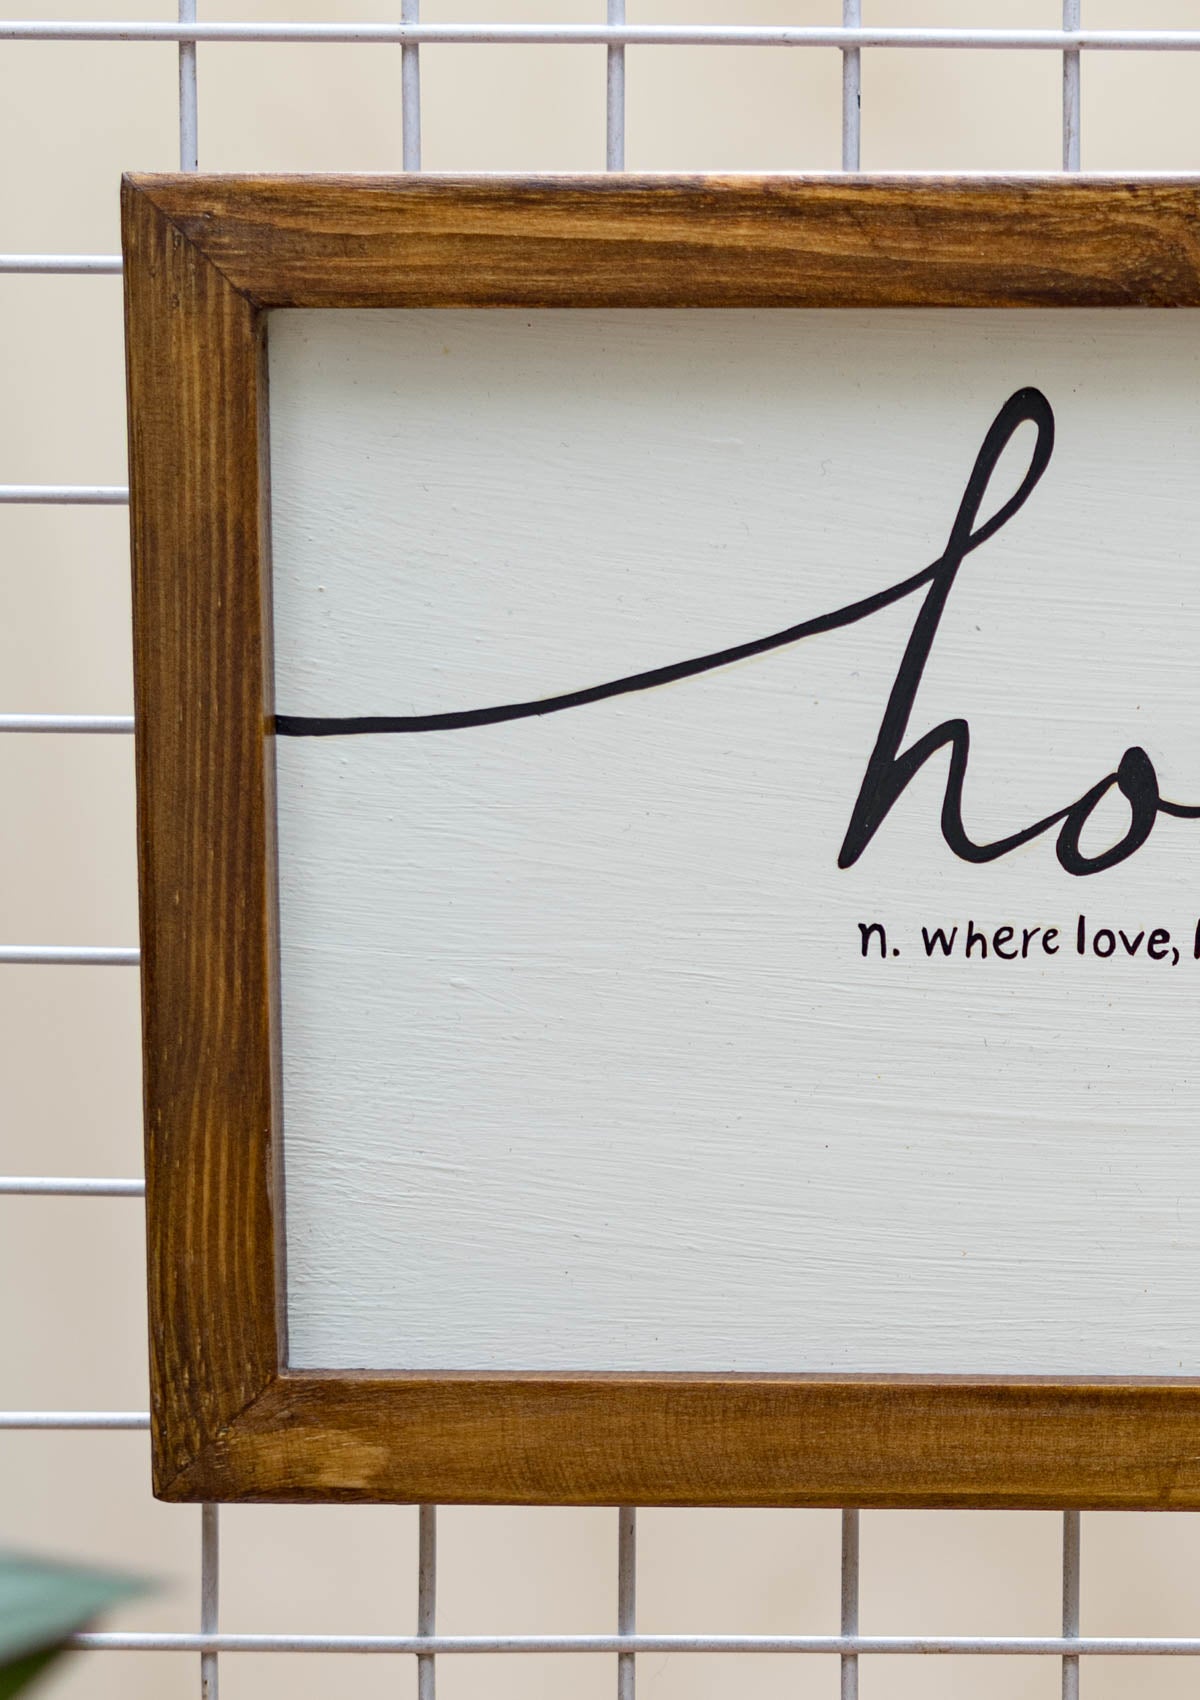 ho
n. where love,